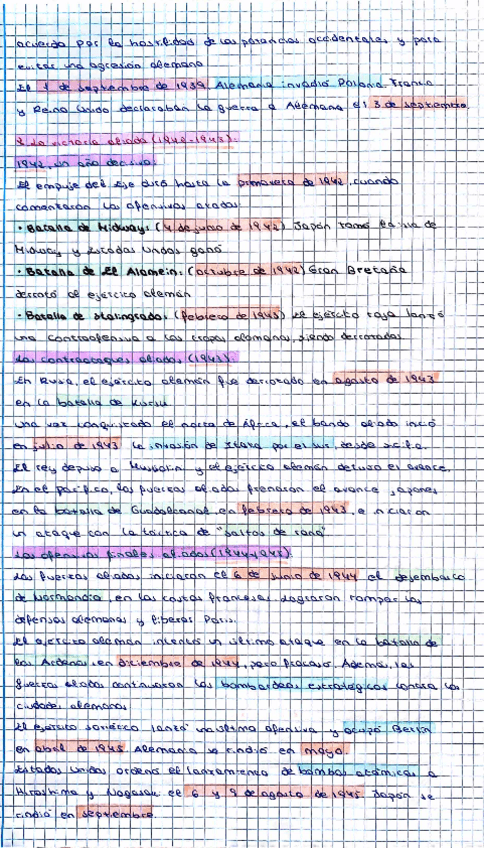 acuerdo por la hostilidad de las potencias occidentales y para
evitar una agresión alemana
El 1 de septiembre de 1939, Alemania invadió Polonia. Francia
y Reino Unido declaraban la guerra a Alemania el 3 de septiembre.
2. La victoria aliada (1942-1945).
1942, un año decisivo.
El empuje del Eje duró hasta la primavera de 1942, cuando
comenzaron las ofensivas aliadas
• Batalla de Midway: (4 de junio de 1942) Japón tomó la isla de
Midway y Estados Unidos ganó.
• Batalla de El Alamein: (octubre de 1942) Gran Bretaña
derrotó al ejército alemán
• Batalla de Stalingrado: (febrero de 1943) El ejército rojo lanzó
una contraofensiva a las tropas alemanas, siendo derrotadas
Los contraataques aliados (1943).
En Rusia, el ejército alemán fue derrotado en agosto de 1943
en la batalla de Kursk
Una vez conquistado el norte de África, el bando aliado inició
en julio de 1943 la invasión de Italia por el sur, desde Sicilia.
El rey depuso a Mussolini y el ejército alemán detuvo el avance.
En el pacífico, las fuerzas aliadas frenaron el avance japonés
en la batalla de Guadalcanal en febrero de 1943, e iniciaron
un ataque con la táctica de "saltos de rana"
Las ofensivas finales aliadas (1944 y 1945).
Las fuerzas aliadas iniciaron el 6 de junio de 1944 el desembarco
de Normandía, en las costas francesas. Lograron romper las
defensas alemanas y liberar París.
El ejército alemán intentó un último ataque en la batalla de
las Ardenas en diciembre de 1944, pero fracasó. Además, las
fuerzas aliadas continuaron los bombardeos estratégicos contra las
ciudades alemanas
El ejército soviético lanzó una última ofensiva y ocupó Berlín
en abril de 1945. Alemania se rindió en mayo.
Estados Unidos ordenó el lanzamiento de bombas atómicas a
Hiroshima y Nagasaki el 6 y 9 de agosto de 1945. Japón se
rindió en septiembre.